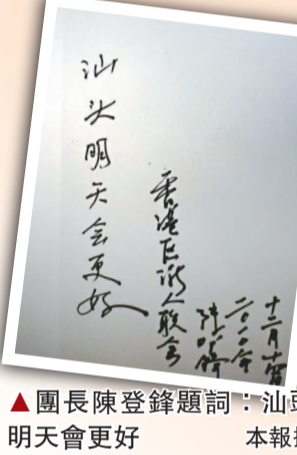 汕头明天会更好
香港区潮人联会
陈登锋
二〇一〇年
十二月
▲團長陳登鋒題詞：汕頭
明天會更好 本報